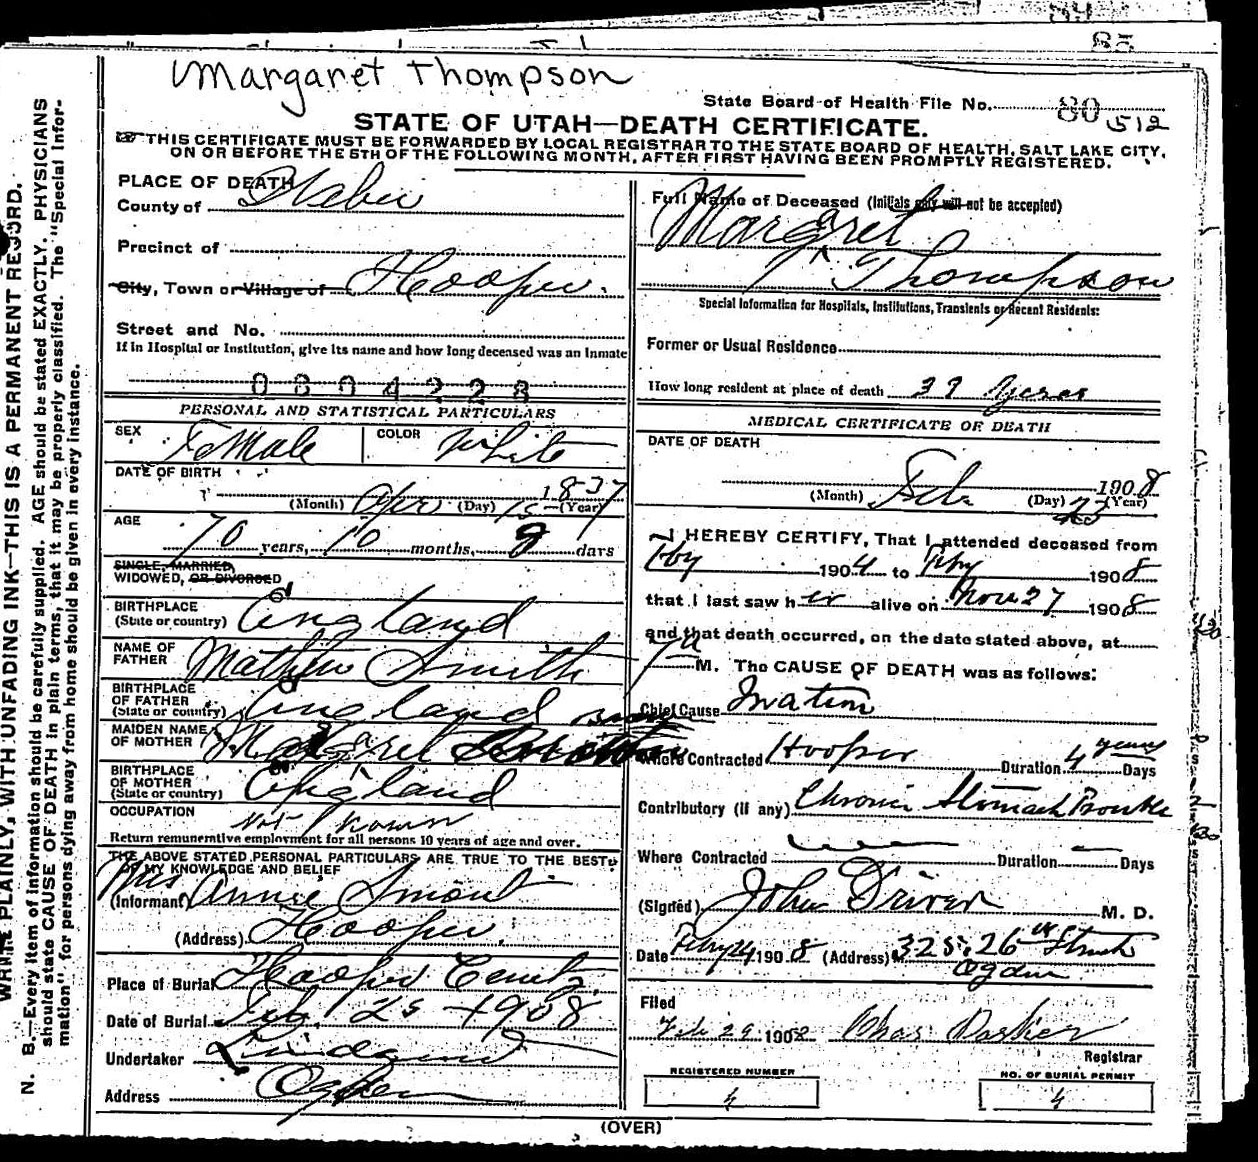 Margaret Thompson
State Board of Health File No. 80 512
STATE OF UTAH—DEATH CERTIFICATE.
THIS CERTIFICATE MUST BE FORWARDED BY LOCAL REGISTRAR TO THE STATE BOARD OF HEALTH, SALT LAKE CITY,
ON OR BEFORE THE 5TH OF THE FOLLOWING MONTH, AFTER FIRST HAVING BEEN PROMPTLY REGISTERED.
WRITE PLAINLY, WITH UNFADING INK—THIS IS A PERMANENT RECORD.
N. B.—Every item of information should be carefully supplied. AGE should be stated EXACTLY. PHYSICIANS
should state CAUSE OF DEATH in plain terms, that it may be properly classified. The "Special Infor-
mation" for persons dying away from home should be given in every instance.
PLACE OF DEATH
County of Weber
Precinct of
City, Town or Village of Hooper.
Street and No.
If in Hospital or Institution, give its name and how long deceased was an Inmate
0804228
PERSONAL AND STATISTICAL PARTICULARS
SEX Female COLOR White
DATE OF BIRTH
(Month) Apr (Day) 15 (Year) 1837
AGE
70 years, 10 months, 8 days
SINGLE, MARRIED,
WIDOWED, OR DIVORCED
BIRTHPLACE
(State or country) England
NAME OF
FATHER Mathew Smith
BIRTHPLACE
OF FATHER
(State or country) England
MAIDEN NAME
OF MOTHER Margaret
BIRTHPLACE
OF MOTHER
(State or country) England
OCCUPATION
Not Known
Return remunerative employment for all persons 10 years of age and over.
THE ABOVE STATED PERSONAL PARTICULARS ARE TRUE TO THE BEST
OF MY KNOWLEDGE AND BELIEF
(Informant) Mrs Annie Simont
(Address) Hooper,
Place of Burial Hooper Cemty.
Date of Burial Feb. 25 - 1908
Undertaker Lindquist
Address Ogden
Full Name of Deceased (Initials only will not be accepted)
Margaret
Thompson
Special Information for Hospitals, Institutions, Transients or Recent Residents:
Former or Usual Residence
How long resident at place of death 37 Years
MEDICAL CERTIFICATE OF DEATH
DATE OF DEATH
(Month) Feb. (Day) 23 1908 (Year)
I HEREBY CERTIFY, That I attended deceased from
Feby 1904 to Feby 1908
that I last saw her alive on Nov 27 1908
and that death occurred, on the date stated above, at
M. The CAUSE OF DEATH was as follows:
Chief Cause
Where Contracted Hooper Duration 4 years Days
Contributory (if any) Chronic Stomach Trouble
Where Contracted Duration Days
(Signed) John Driver M. D.
Date Feby 24 1908 (Address) 325. 26th Street
Ogden
Filed
Feb 29 1908 Chas Parker
Registrar
REGISTERED NUMBER
4
NO. OF BURIAL PERMIT
4
(OVER)